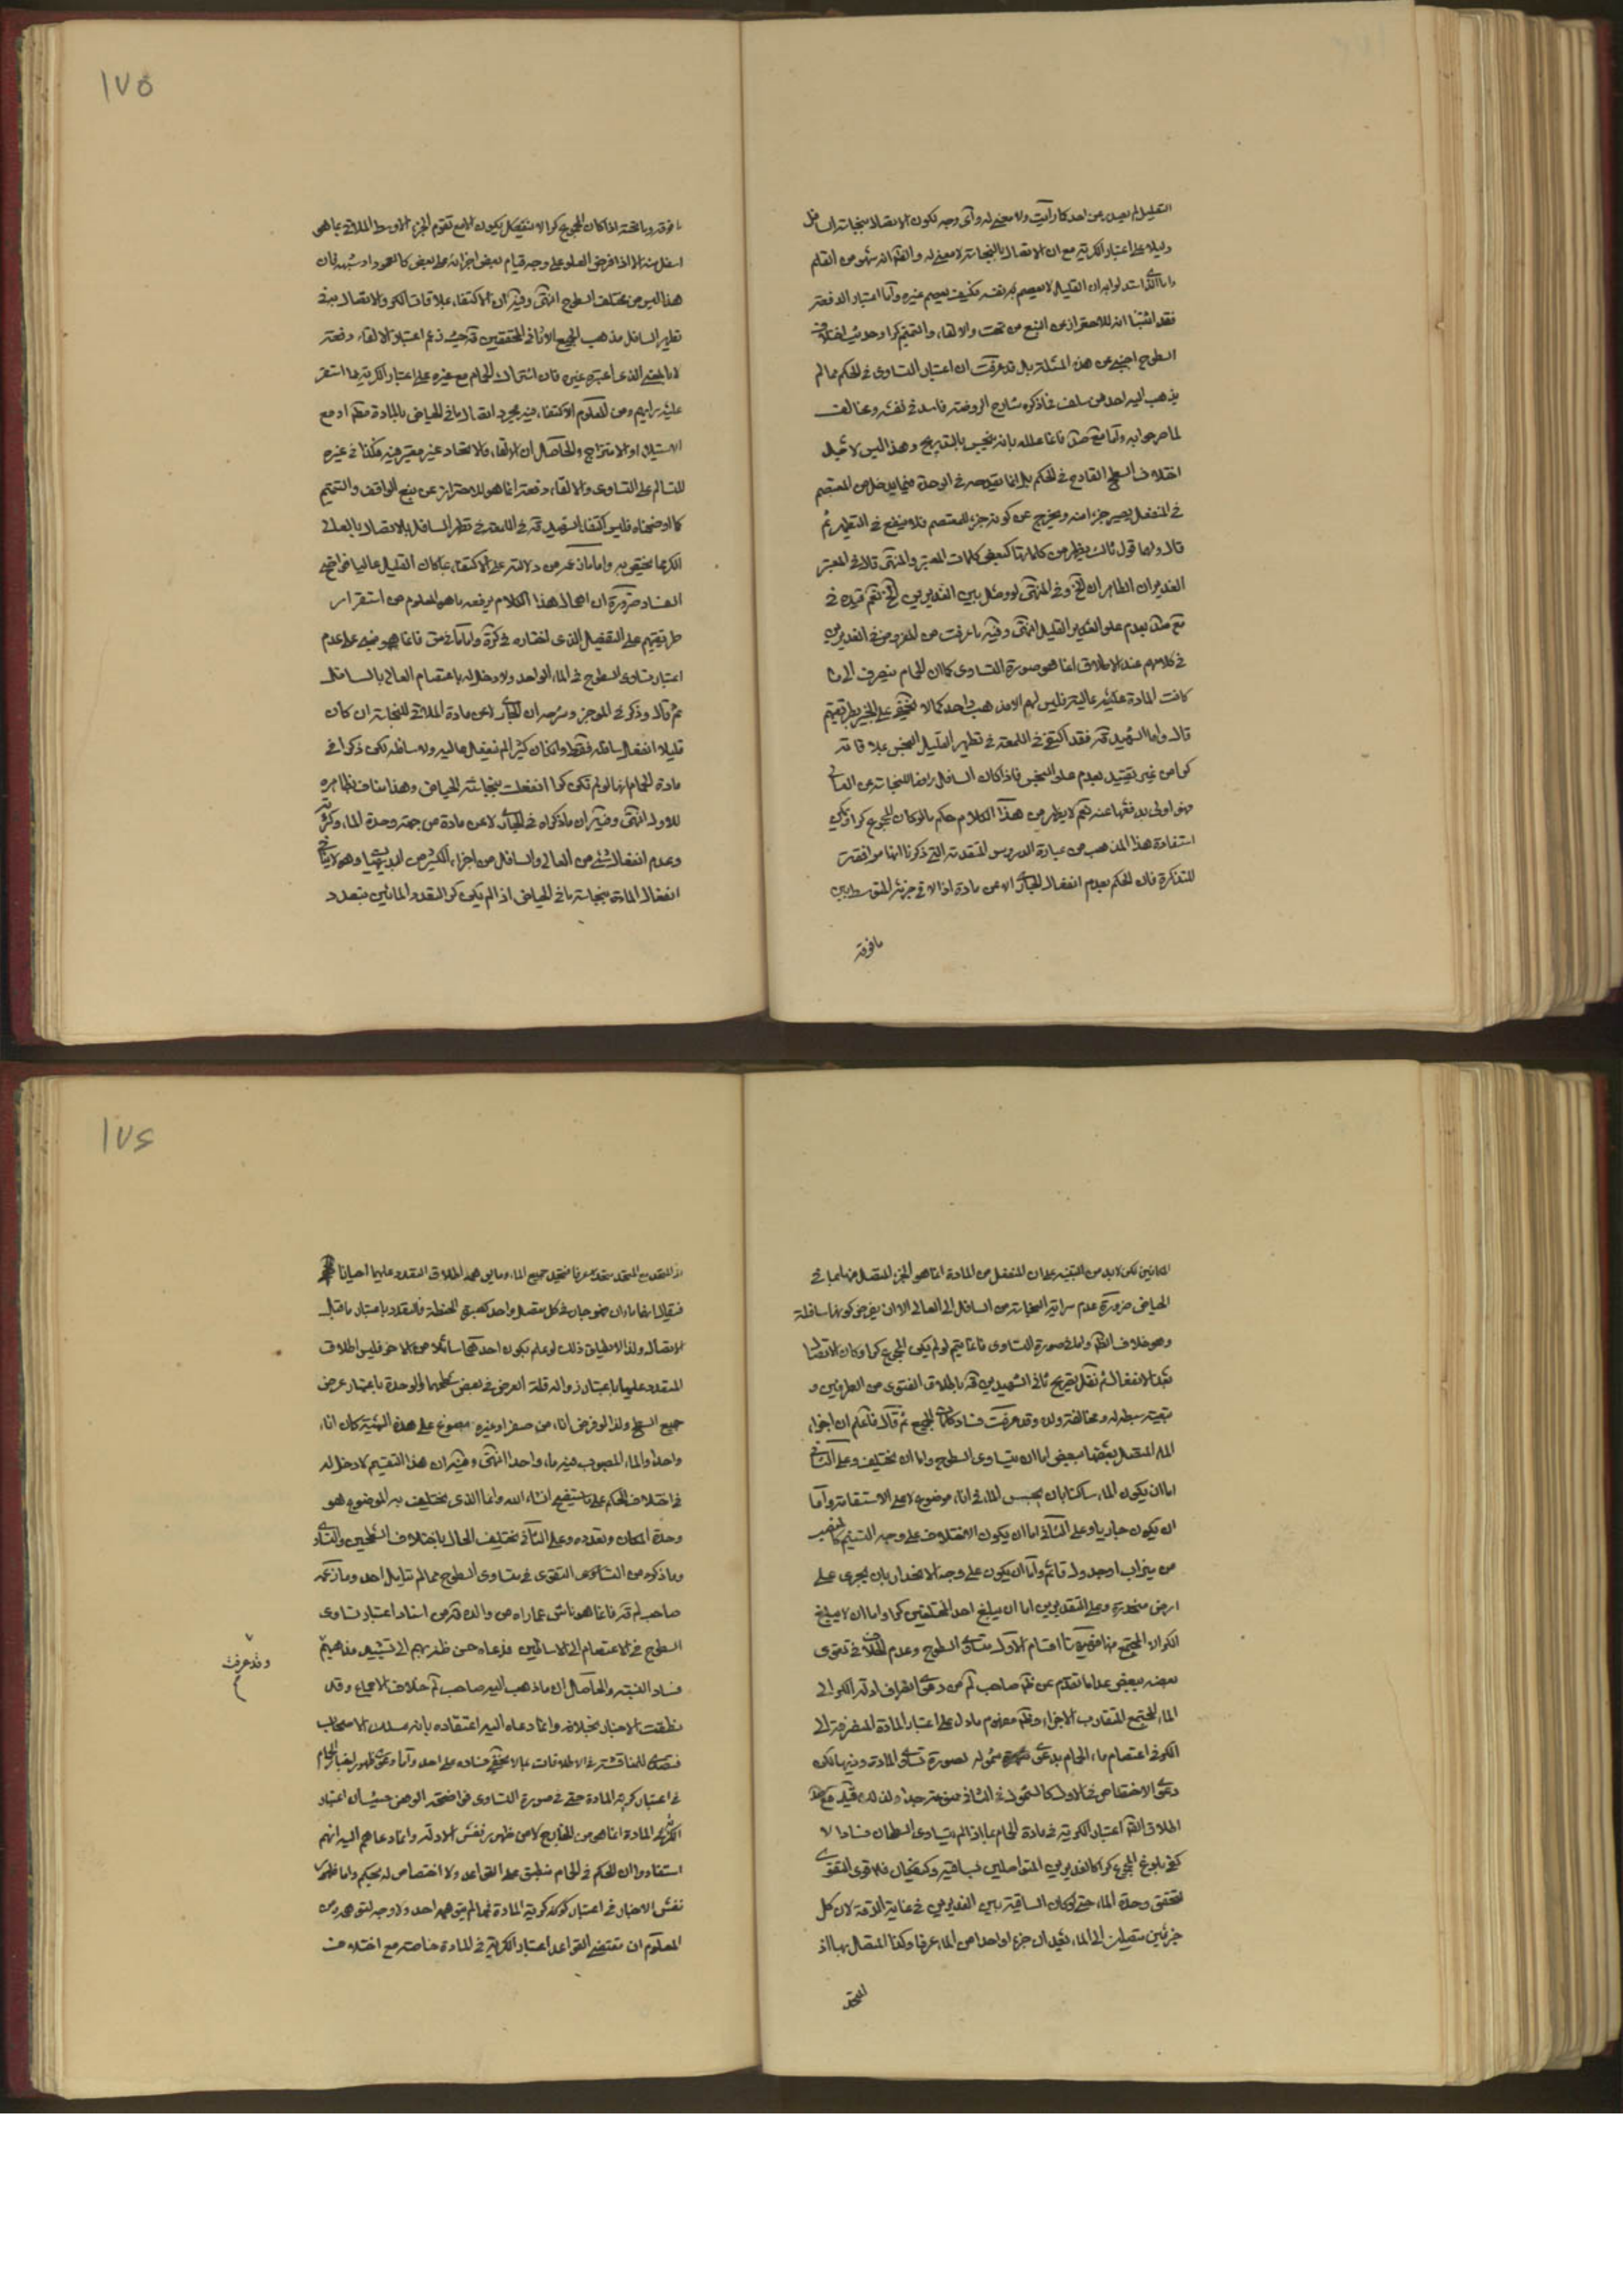 التعليل لم يصدر عن احد كما رأيت ولا معنى له وأي وجه لكون الانفعال بنجاسة السافل
دليلا على اعتبار الكرية مع ان الانفعال بالنجاسة لا معنى له والظ انه سهو من القلم
فقد اثبتنا انه للاحتراز عن النبع من تحت والالقاء والتتميم كرا وحديث اختلاف
السطوح اجنبي عن هذه المسئلة بل قد عرفت ان اعتبار التساوى فى الحكم مما لم
يذهب اليه احد من سلف فما ذكره شارح الروضة فاسد فى نفسه ومخالف
اختلاف السطح القادح فى الحكم بل انما يقدحه فى الوحدة
فى المنفعل يصير جزء منه ويخرج عن كونه جزء للمعتصم فلا ينفع فى التطهير ثم
قال ولها قول ثالث يظهر من كلماتها كبعض كلمات المعتبر والمنتهى قال فى المعتبر
الغديران الطاهران الخ وفى المنتهى لو وصل بين الغديرين الخ نعم قيده فى
فى كلامهم عند الاطلاق انما هو صورة التساوى كما ان الحمام ينصرف الى ما
كانت المادة عالية فليس لهم الا مذهب واحد كما لا يخفى على الخبير بطريقتهم
قال واما الشهيد قه فقد اكتفى فى اللمعة فى تطهير القليل النجس بملاقاته
كرا من غير تقييد بعدم علو النجس فاذا كان السافل رافعا للنجاسة عن العالى
فهو اولى بدفعها عنه نعم لا يظهر من هذا الكلام حكم ما لو كان المجموع كرا ويمكن
استفادة هذا المذهب من عبارة الدروس المتقدمة التى ذكرنا انها موافقة
للتذكرة فان الحكم بعدم انفعال الجارى لا عن مادة اذا لاقى جزئه المتوسط بين
ما فوقه
١٧٥
ما فوقه وما تحته اذا كان المجموع كرا لا ينفعل يكون الامع تقوم الجزء الاوسط الملاقى بما هو
اسفل منه الا اذا فرض العلو على وجه قيام بعض اجزائه على بعض كالعمود او شبهه فان
هذا ليس من مختلف السطوح انتهى وفيه ان الاكتفاء بملاقات الكر والاتصال به فى
تطهير السافل مذهب الجميع الا ثانى المحققين قه حيث زعم اعتبار الالقاء دفعة
لا بالمعنى الذى اعتبره غيره فان اشتراك الحمام مع غيره على اعتبار الكرية مما استقر
عليه رأيهم ومن المعلوم الاكتفاء فيه بمجرد اتصال ما فى الحياض بالمادة مطلقا او مع
الاستيلاء او الامتزاج والحاصل ان الالقاء والاتحاد غير معتبر فيه فكذا فى غيره
للتسالم على التساوى والالقاء دفعة انما هو للاحتراز عن نبع الواقف والتتميم
كما اوضحناه فليس اكتفاء الشهيد قه فى اللمعة فى تطهير السافل بالاتصال بالعالى
الكر مما يختص به
الفساد ضرورة ان اجمال هذا الكلام يرفعه ما هو المعلوم من استقرار
طريقتهم على التفصيل الذى اختاره فى كره
اعتبار تساوى السطوح فى الماء الواحد ولا دخل له باعتصام العالى بالسافل
ثم قال وذكر فى الموجز وشرحه ان الجارى لا عن مادة الملاقى للنجاسة ان كان
قليلا انفعل سافله فقط وان كان كثيرا لم ينفعل عاليه ولا سافله لكن ذكرا فى
مادة الحمام انها لو لم تكن كرا انفعلت بنجاسة الحياض وهذا مناف بظاهره
للاول انتهى وفيه ان ما ذكراه فى الجارى لا عن مادة من جهة وحدة الماء وكثرته
وعدم انفعال شئ من العالى والسافل من اجزاء الكثير من البديهيات وهو لا ينافى
انفعال المادة بنجاسة ما فى الحياض اذا لم يكن كرا لتعدد المائين بتعدد
المكانين لكن لا بد من التنبيه على ان المنفعل من المادة انما هو الجزء المتصل منها بما فى
الحياض ضرورة عدم سراية النجاسة من السافل الى العالى الا ان يفرض كونها سافلة
وهو خلاف الظ واما فى صورة التساوى فانما يتم لو لم يكن المجموع كرا وكان الاتصال
بعد الانفعال ثم نقل تصريح ثانى الشهيدين قه باطلاق الفتوى من الطرفين و
تبعية سبطه له ومخالفة ولده وقد عرفت فساد كلمات الجميع ثم قال فاعلم ان اجزاء
الماء المتصل بعضها ببعض اما ان يتساوى السطوح واما ان يختلف وعلى الثانى
اما ان يكون الماء ساكنا بان يحبس الماء فى اناء موضوع لا على الاستقامة واما
ان يكون جاريا وعلى الثانى اما ان يكون الاختلاف على وجه التسنيم كالمنصب
من ميزاب او جدول قائم واما ان يكون على وجه الانحدار بان يجرى على
ارض منحدرة وعلى التقديرين اما ان يبلغ احد المختلفين كرا واما ان لا يبلغ
الكر الا المجتمع منهما فهيهنا اقسام الاول متساوى السطوح وعدم الخلاف فى تقوى
بعضه ببعض عدا ما تقدم عن ظ صاحب لم من دعوى انصراف ادلة الكر الى
الماء المجتمع المتقارب الاجزاء وظ مفهوم ما دل على اعتبار المادة المنصرفة الى
الكر فى اعتصام ماء الحمام بدعوى شموله لصورة تساوى المادة وفيها لكن
دعوى الاختصاص فى الاول كالشمول فى الثانى ممنوعة جدا
اطلاق الظ اعتبار الكرية فى مادة الحمام بما اذا لم يتساوى السطحان فساد لا
كفى بلوغ المجموع كرا كالغديرين المتواصلين بساقية وكيف كان فالاقوى التقوى
لتحقق وحدة الماء حتى لو كان الساقية بين الغديرين فى غاية الدقة لان كل
جزئين متصلين الى الماء يعدان جزء واحدا من الماء عرفا وكذا المتصل بهما اذ
المتحد
١٧٦
اذ المتحد مع المتحد متحد عرفا فيتحد جميع الماء اطلاق التعدد عليهما احيانا
فيقال انهما ماءان ممزوجان فى كل متصل واحد كصبرتى الحنطة فالتعدد باعتبار ما قبل
الاتصال ولذا لا يطلق ذلك لو علم بكون احدهما سائلا من الاخر فليس اطلاق
التعدد عليهما باعتبار زوال قلة العرض فى بعض سطحهما والوحدة باعتبار عرض
جميع السطح ولذا لو فرض اناء من صفر او غيره مصنوع على هذه الهيئة كان اناء
واحدا والماء المصبوب فيه ماء واحدا انتهى وفيه ان هذا التقسيم لا دخل له
فى اختلاف الحكم على ما ستفتح انشاء الله وانما الذى يختلف به الموضوع هو
وحدة المكان وتعدده وعلى الثانى يختلف الحال باختلاف السطحين والتساوى
وما ذكره من التقوى فى متساوى السطوح مما لم يتأمل احد وما زعمه
صاحب لم قه فانما هو ناش عما رأه من والده قه من اسناد اعتبار تساوى
السطوح فى الاعتصام الى الاساطين فدعاه حسن ظنه بهم الى تشييد مذاهبهم
وقد عرفت
فساد النسبة والحاصل ان ما ذهب اليه صاحب لم خلاف الاجماع وقد
نطقت الاخبار بخلافه وانما دعاه اليه اعتقاده بانه مسلك الاصحاب
فتصدى للمناقشة فى الاطلاقات بما لا يخفى فساده على احد واما دعوى ظهور اخبار الحمام
فى اعتبار كرية المادة حتى فى صورة التساوى فواضحة الوهن حيث ان اعتبار
الكرية فى المادة انما هو من الخارج لا من ظهور نفس الادلة وانما دعاهم اليه انهم
استفادوا ان الحكم فى الحمام منطبق على القواعد ولا اختصاص له بحكم واما ظهور
نفس الاخبار فى اعتبار كرية المادة فمما لم يتوهمه احد ولا وجه لتوهمه ومن
المعلوم ان مقتضى القواعد اعتبار الكرية فى المادة خاصة مع اختلاف